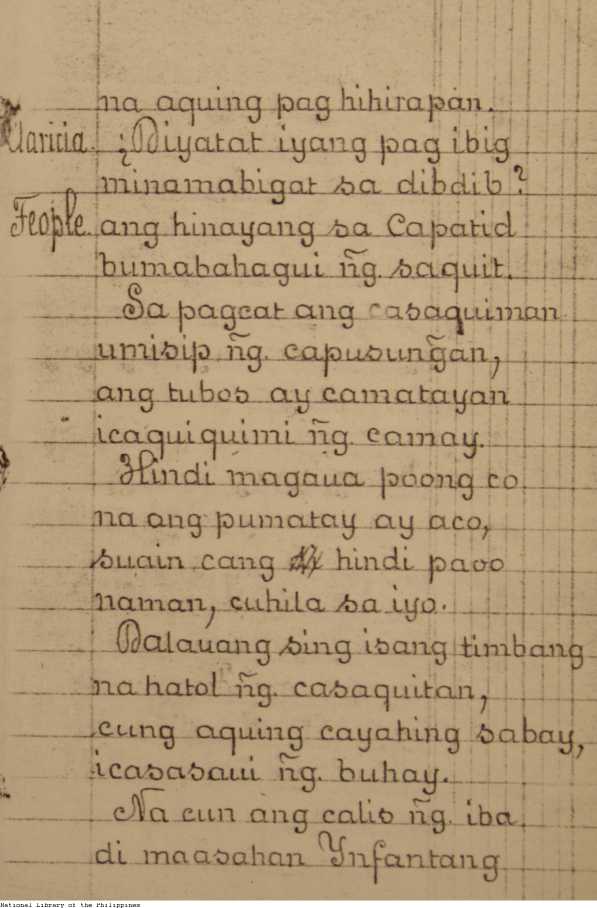 na aquing pag hihirapan.
Claricia. ¿Diyatat iyang pag ibig
minamabigat sa dibdib?
Feople. ang hinayang sa Capatid
bumabahagui ñg. saquit.
Sa pagcat ang casaquiman
umisip ñg. capusuñgan,
ang tubos ay camatayan
icaquiquimi ñg. camay.
Hindi magaua poong co
na ang pumatay ay aco,
suain cang hindi paoo
naman, cuhila sa iyo.
Dalauang sing isang timbang
na hatol ñg. casaquitan,
cung aquing cayahing sabay,
icasasaui ñg. buhay.
Na cun ang calis ñg. iba
di maasahan Ynfantang
National Library of the Philippines